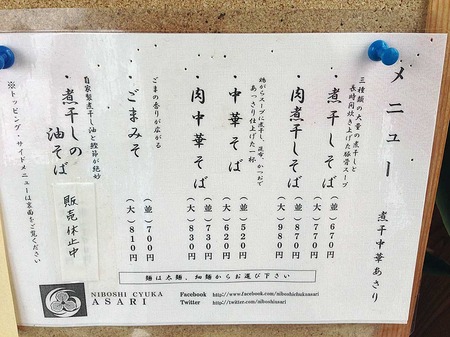 メニュー
煮干中華あさり
三種類の大量の煮干しと
長時間炊き上げた豚骨スープ
・煮干しそば
(並) 670円
(大) 770円
・肉煮干しそば
(並) 870円
(大) 980円
鶏がらスープに煮干し、昆布、かつおで
あっさり仕上げた一杯
・中華そば
(並) 520円
(大) 620円
・肉中華そば
(並) 730円
(大) 830円
ごまの香りが広がる
・ごまみそ
(並) 700円
(大) 810円
自家製煮干し油と鰹節が絶妙
・煮干しの
油そば
販売休止中
※トッピング・サイドメニューは裏面をご覧ください
麺は太麺、細麺からお選び下さい
NIBOSHI CYUKA
ASARI
Facebook http://www.facebook.com/niboshichukaasari
Twitter http://twitter.com/niboshiasari